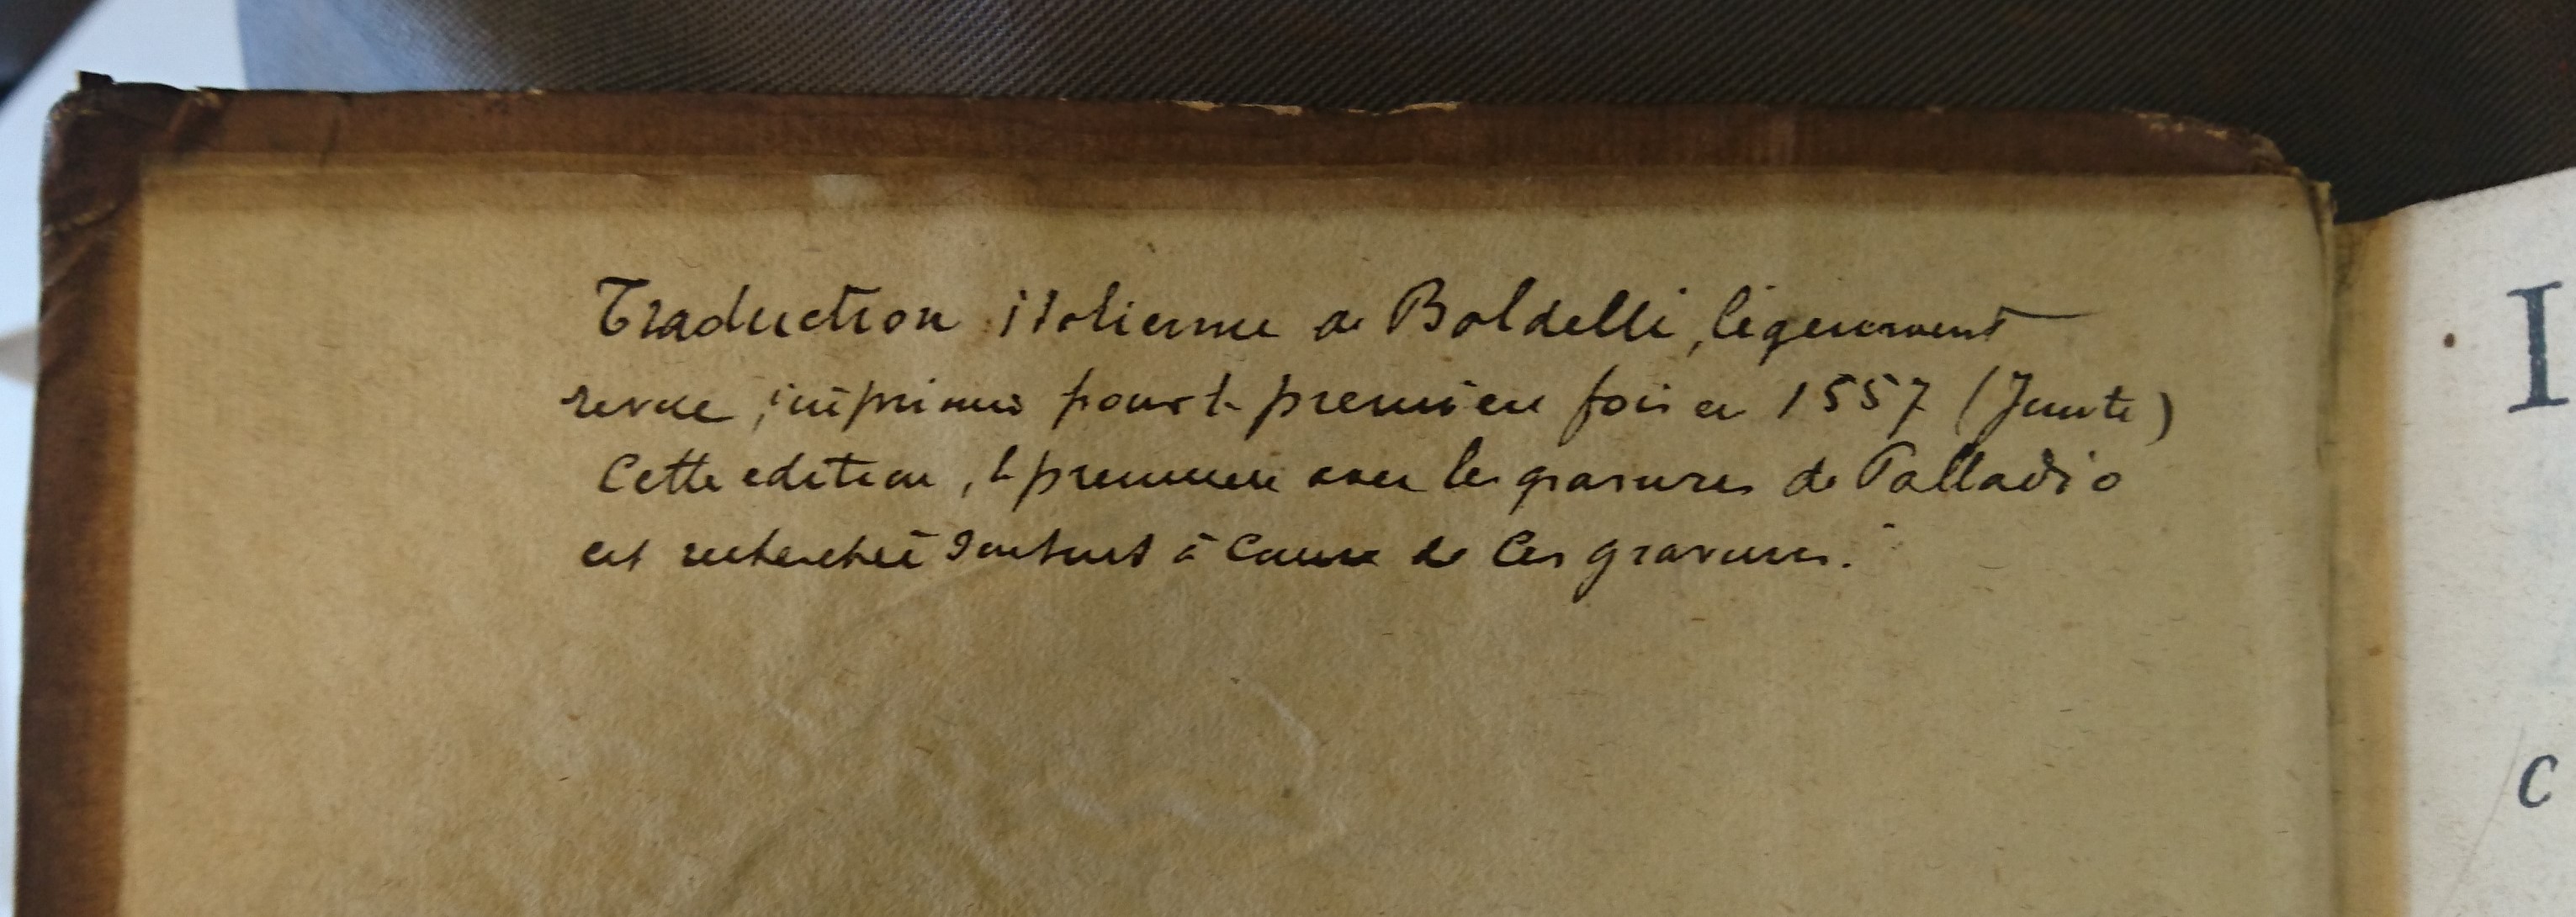 Traduction italienne de Baldelli, légerement
revue, imprimée pour la première fois en 1557 (Junte)
Cette edition, la premiere avec les gravures de Palladio
est recherchée surtout à cause de ces gravures.
I
C